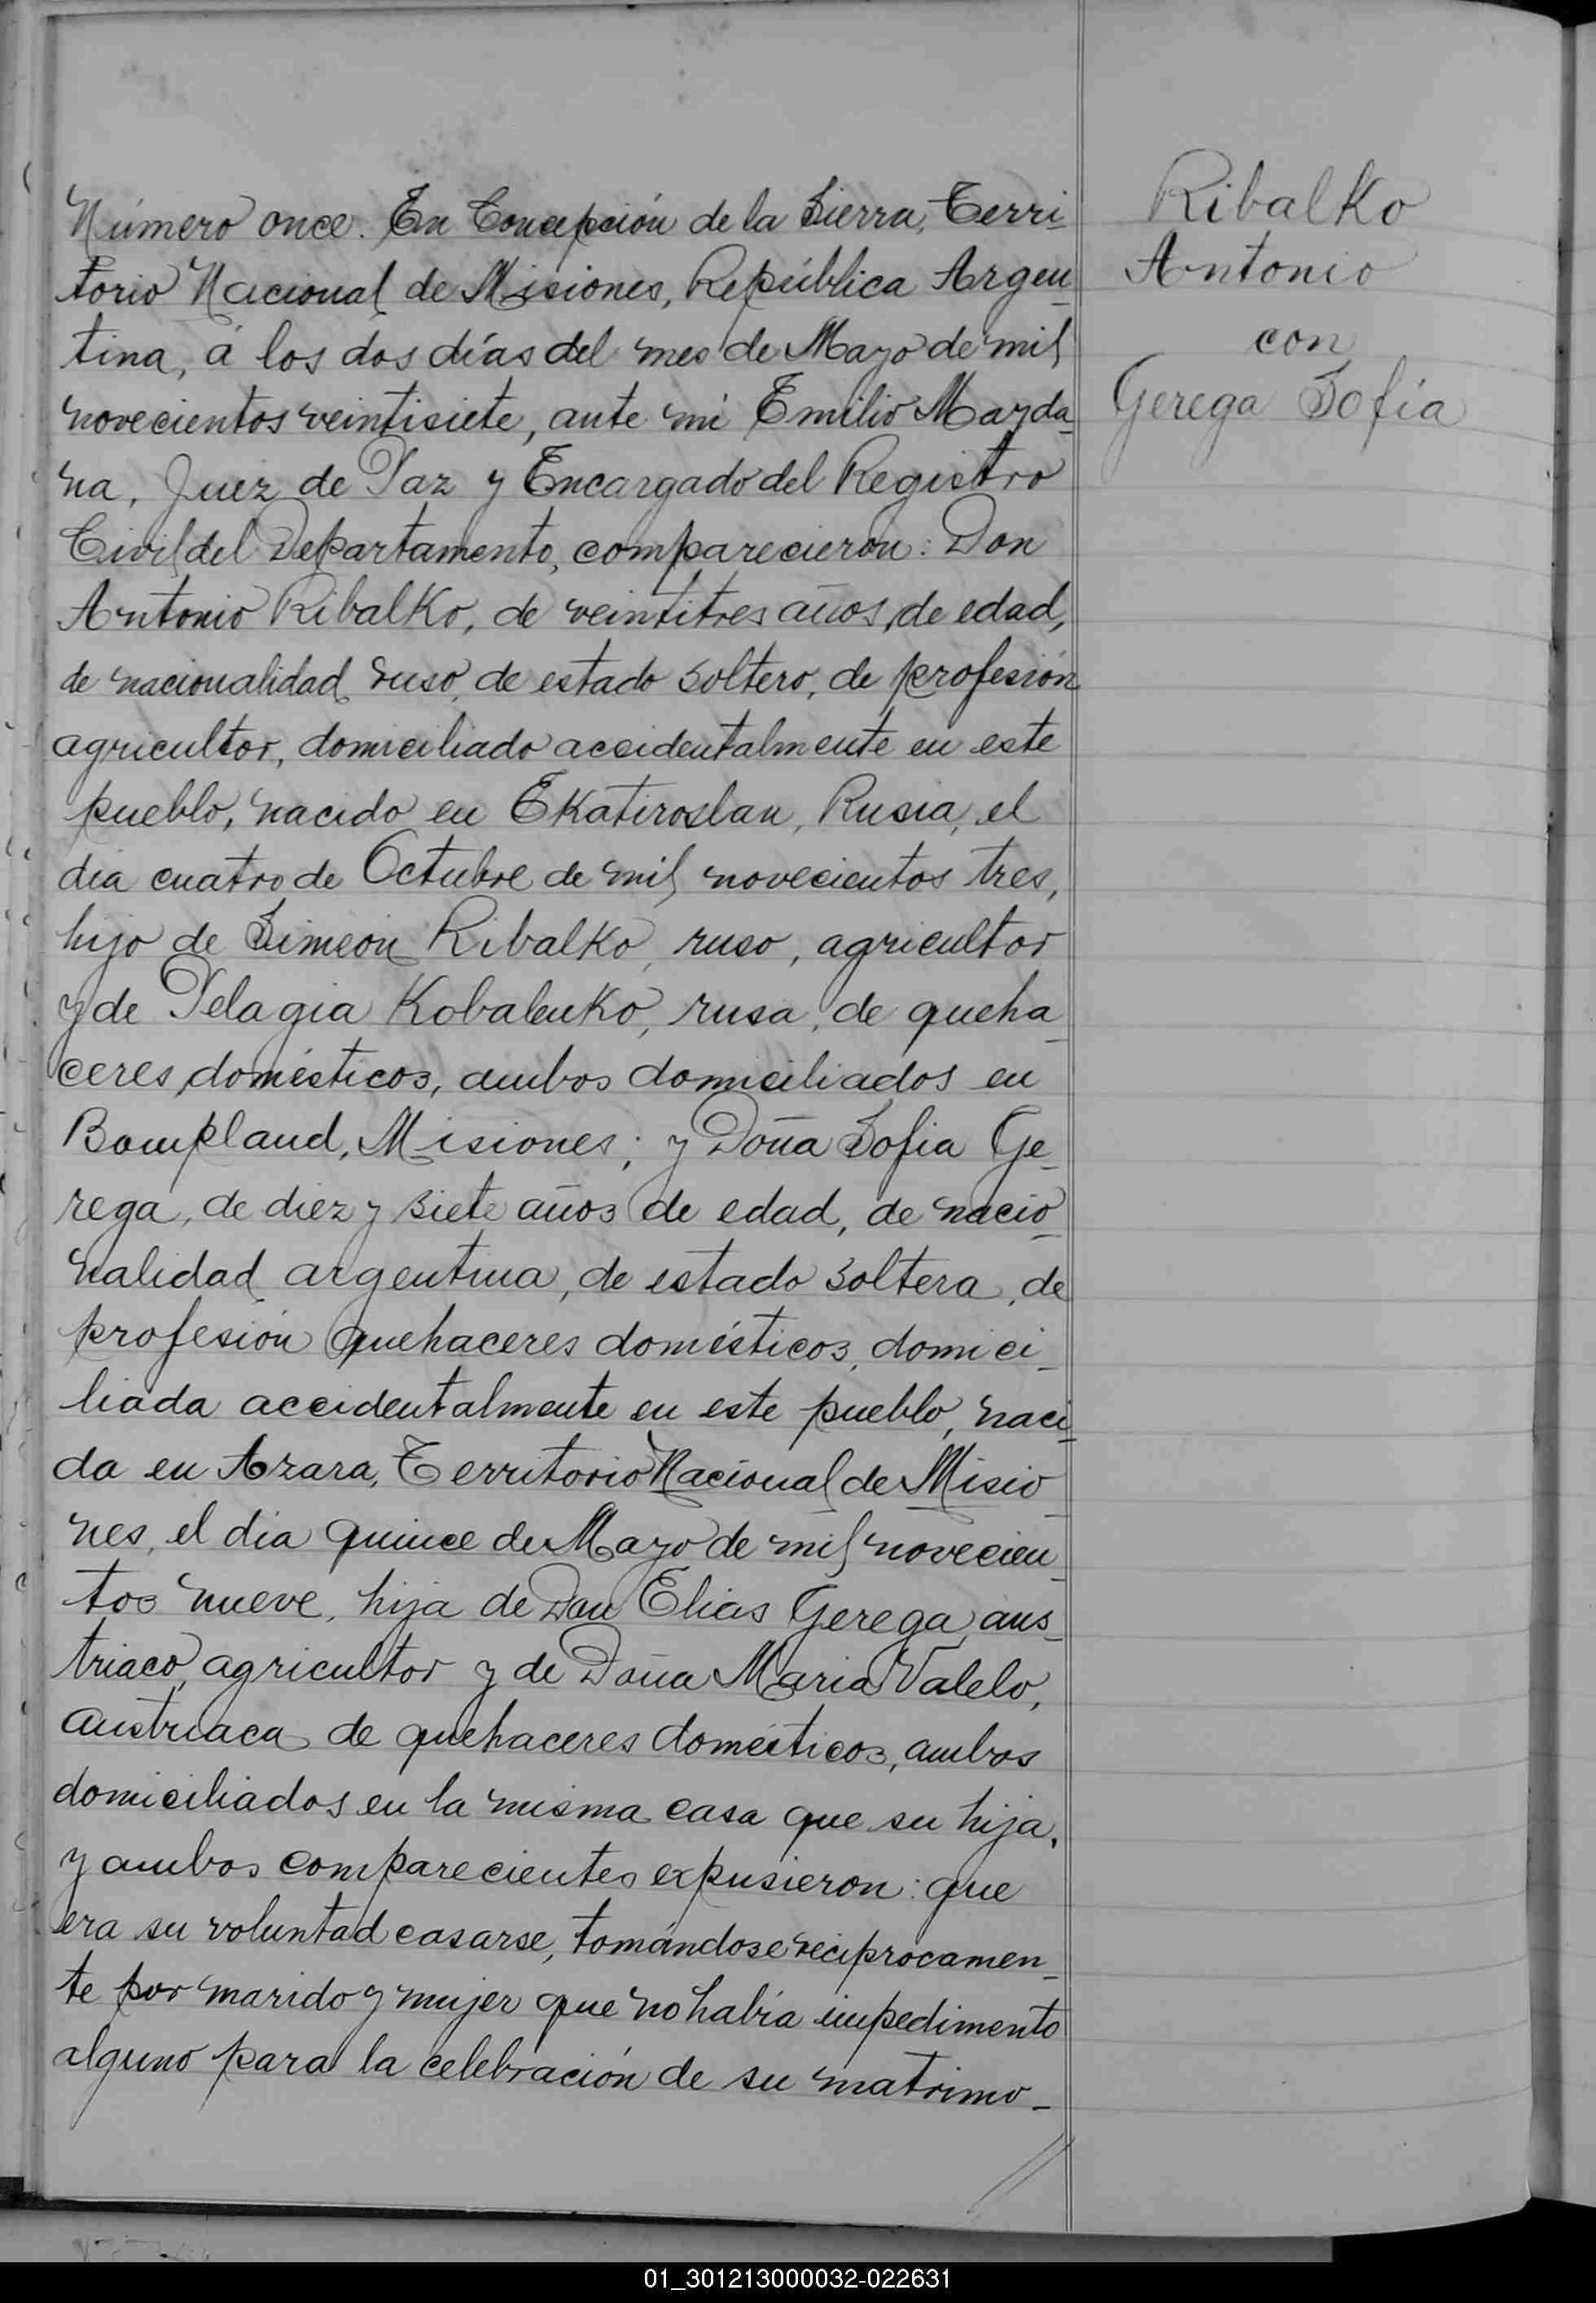 Número once. En Concepción de la Sierra, Terri-
torio Nacional de Misiones, República Argen-
tina, á los dos días del mes de Mayo de mil
novecientos veintisiete, ante mi Emilio Mayda-
na, Juez de Paz y Encargado del Registro
Civil del Departamento, comparecieron: Don
Antonio Ribalko, de veintitres años, de edad,
de nacionalidad ruso, de estado soltero, de profesión
agricultor, domiciliado accidentalmente en este
pueblo, nacido en Ekatiroslan, Rusia, el
dia cuatro de Octubre de mil novecientos tres,
hijo de Simeon Ribalko, ruso, agricultor
y de Pelagia Kobalenko, rusa, de queha-
ceres domésticos, ambos domiciliados en
Bompland, Misiones; y Doña Sofia Ge-
rega, de diez y siete años de edad, de nacio-
nalidad argentina, de estado soltera, de
profesión quehaceres domésticos, domici-
liada accidentalmente en este pueblo, naci-
da en Azara, Territorio Nacional de Misio-
nes, el dia quince de Mayo de mil novecien-
tos nueve, hija de Don Elias Gerega, aus-
triaco, agricultor y de Doña Maria Valelo,
austriaca de quehaceres domésticos, ambos
domiciliados en la misma casa que su hija,
y ambos comparecientes expusieron: que
era su voluntad casarse, tomándose reciprocamen-
te por marido y mujer que no había impedimento
alguno para la celebración de su matrimo-
Ribalko
Antonio
con
Gerega Sofía
01_301213000032-022631